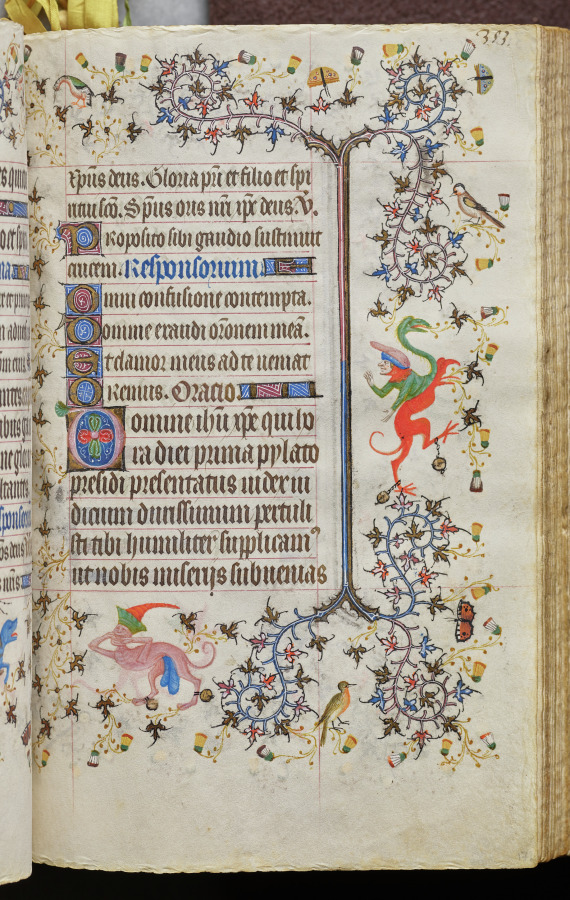 353.
xp̄us deus. Gloria pr̄i et filio et spi
ritui sc̄o. Sp̄us oris nr̄i xp̄e deus. V.
Proposito sibi gaudio sustinuit
crucem. Responsorium.
Omni confusione contempta.
Domine exaudi or̄onem meā.
Et clamor meus ad te ueniat
Oremus. Oracio
Domine ih̄u xp̄e qui ho
ra diei prima pylato
presidi presentatus iudex iu
dicum durissimum pertuli
sti tibi humiliter supplicam᷒
ut nobis miserijs subuenias